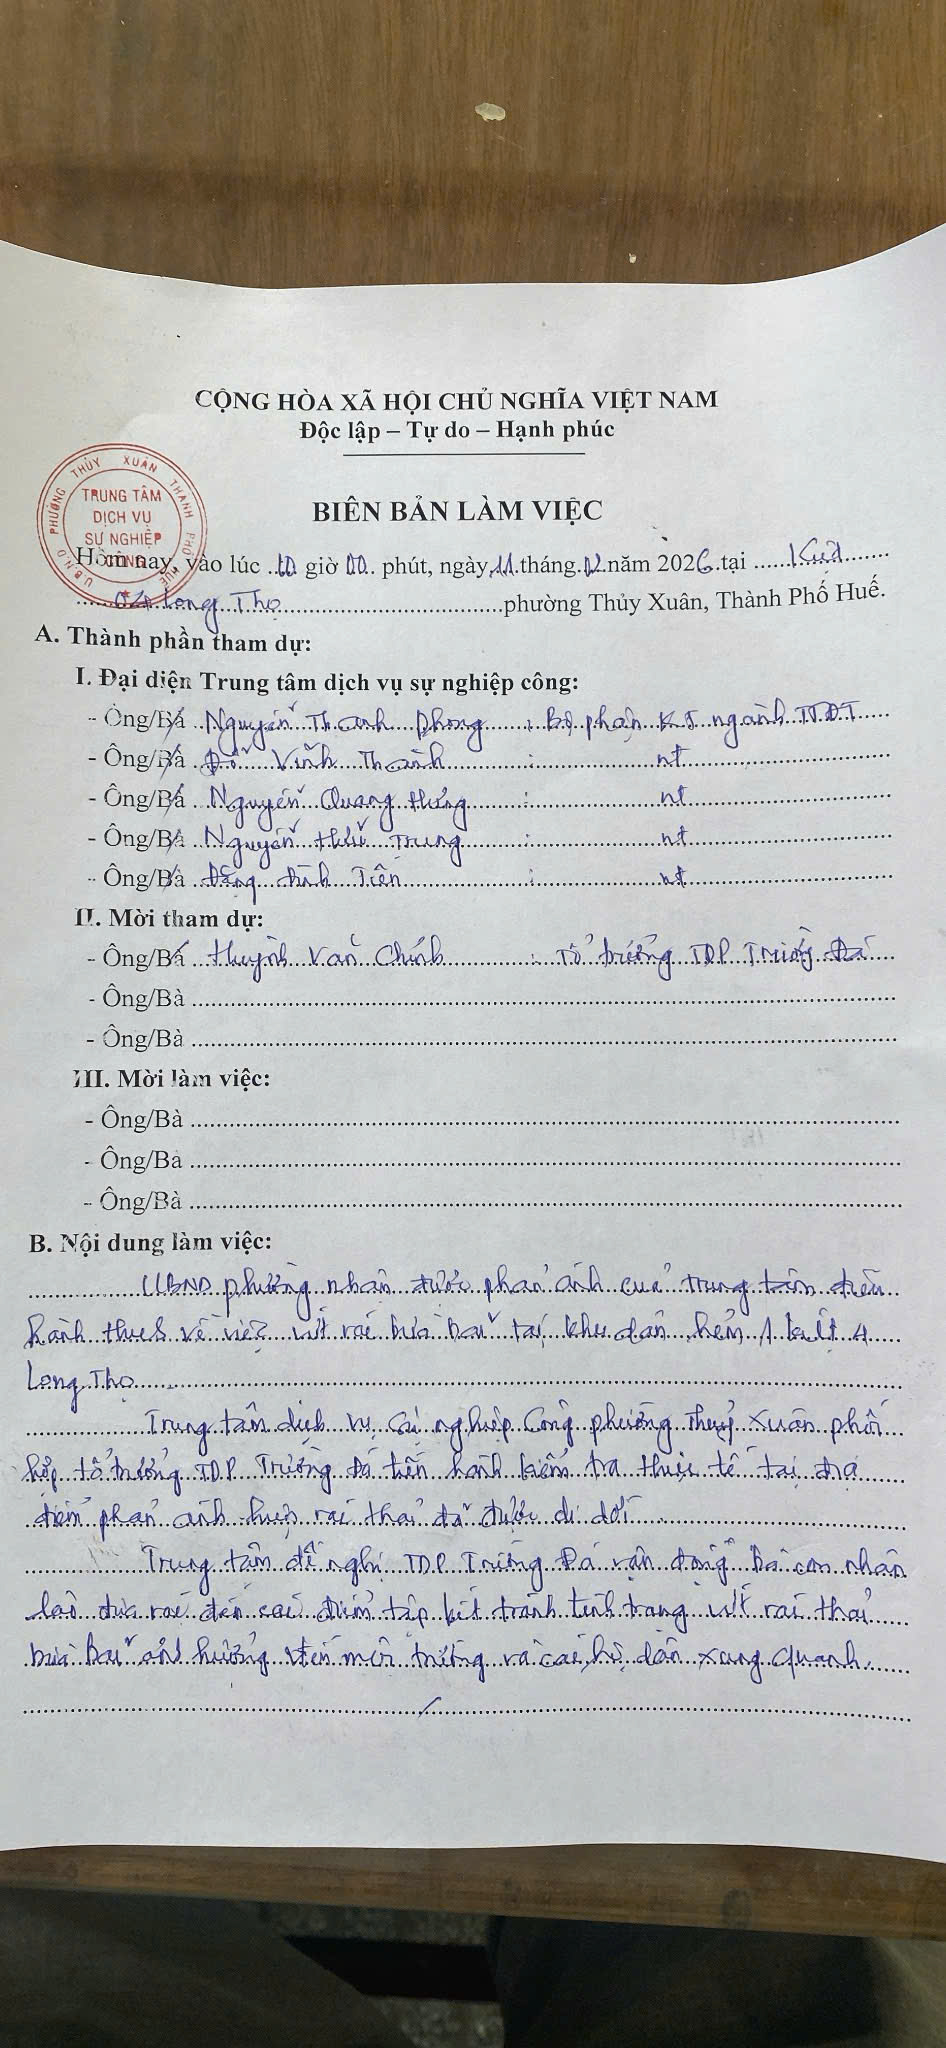 CỘNG HÒA XÃ HỘI CHỦ NGHĨA VIỆT NAM
Độc lập – Tự do – Hạnh phúc
U.B.N.D PHƯỜNG THỦY XUÂN THÀNH PHỐ HUẾ
TRUNG TÂM
DỊCH VỤ
SỰ NGHIỆP
CÔNG
BIÊN BẢN LÀM VIỆC
Hôm nay, vào lúc 10 giờ 00 phút, ngày 11 tháng 02 năm 2026 tại Khu
dân Long Thọ phường Thủy Xuân, Thành Phố Huế.
A. Thành phần tham dự:
I. Đại diện Trung tâm dịch vụ sự nghiệp công:
- Ông/Bà Nguyễn Thanh Phong : Bộ phận KT ngành TTĐT
- Ông/Bà Đỗ Vĩnh Thành : nt
- Ông/Bà Nguyễn Quang Hưng : nt
- Ông/Bà Nguyễn Hữu Trung : nt
- Ông/Bà Đặng Đình Tiên : nt
II. Mời tham dự:
- Ông/Bà Huỳnh Văn Chính : Tổ trưởng TDP Trường Đá
- Ông/Bà
- Ông/Bà
III. Mời làm việc:
- Ông/Bà
- Ông/Bà
- Ông/Bà
B. Nội dung làm việc:
UBND phường nhận được phản ánh của trung tâm điều
hành thues về việc vứt rác bừa bãi tại khu dân, hẻm 1 kiệt 4
Long Thọ
Trung tâm dịch vụ sự nghiệp Công phường Thuỷ Xuân phối
hợp tổ trưởng TDP Trường Đá tiến hành kiểm tra thực tế tại địa
điểm phản ánh hiện rác thải đã được di dời
Trung tâm đề nghị TDP Trường Đá vận động bà con nhân
dân đưa rác đến các điểm tập kết tránh tình trạng vứt rác thải
bừa bãi ảnh hưởng đến môi trường và các hộ dân xung quanh.